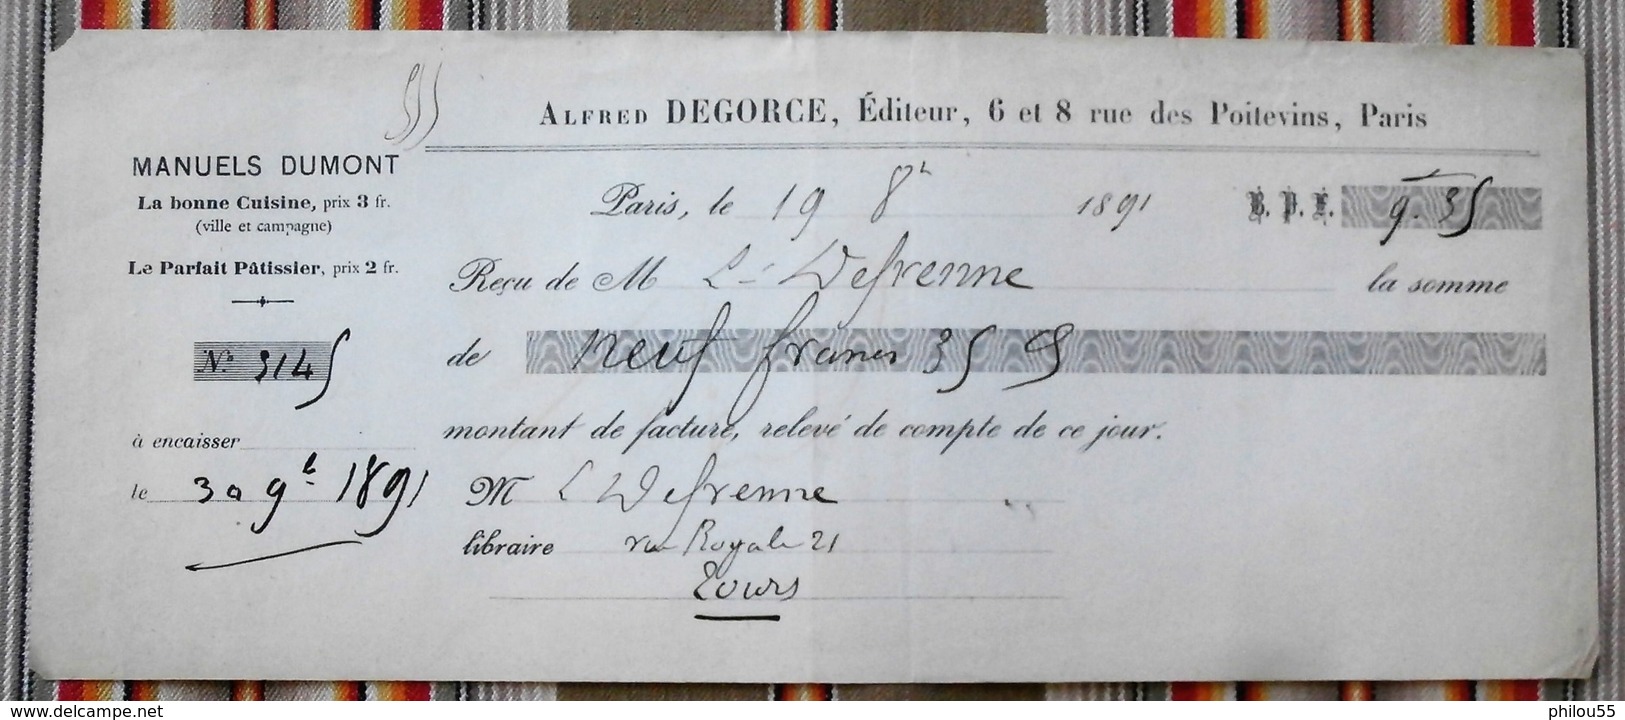 ALFRED DEGORCE, Éditeur, 6 et 8 rue des Poitevins, Paris
MANUELS DUMONT
La bonne Cuisine, prix 3 fr.
(ville et campagne)
Le Parfait Pâtissier, prix 2 fr.
N° 3145
à encaisser
le 30 9b 1891
Paris, le 19 8b 1891 B.P.F. 9.35
Reçu de M L Defrenne la somme
de neuf francs 35 c
montant de facture, relevé de compte de ce jour.
M L Defrenne
libraire rue Royale 21
Tours
www.delcampe.net
philou55